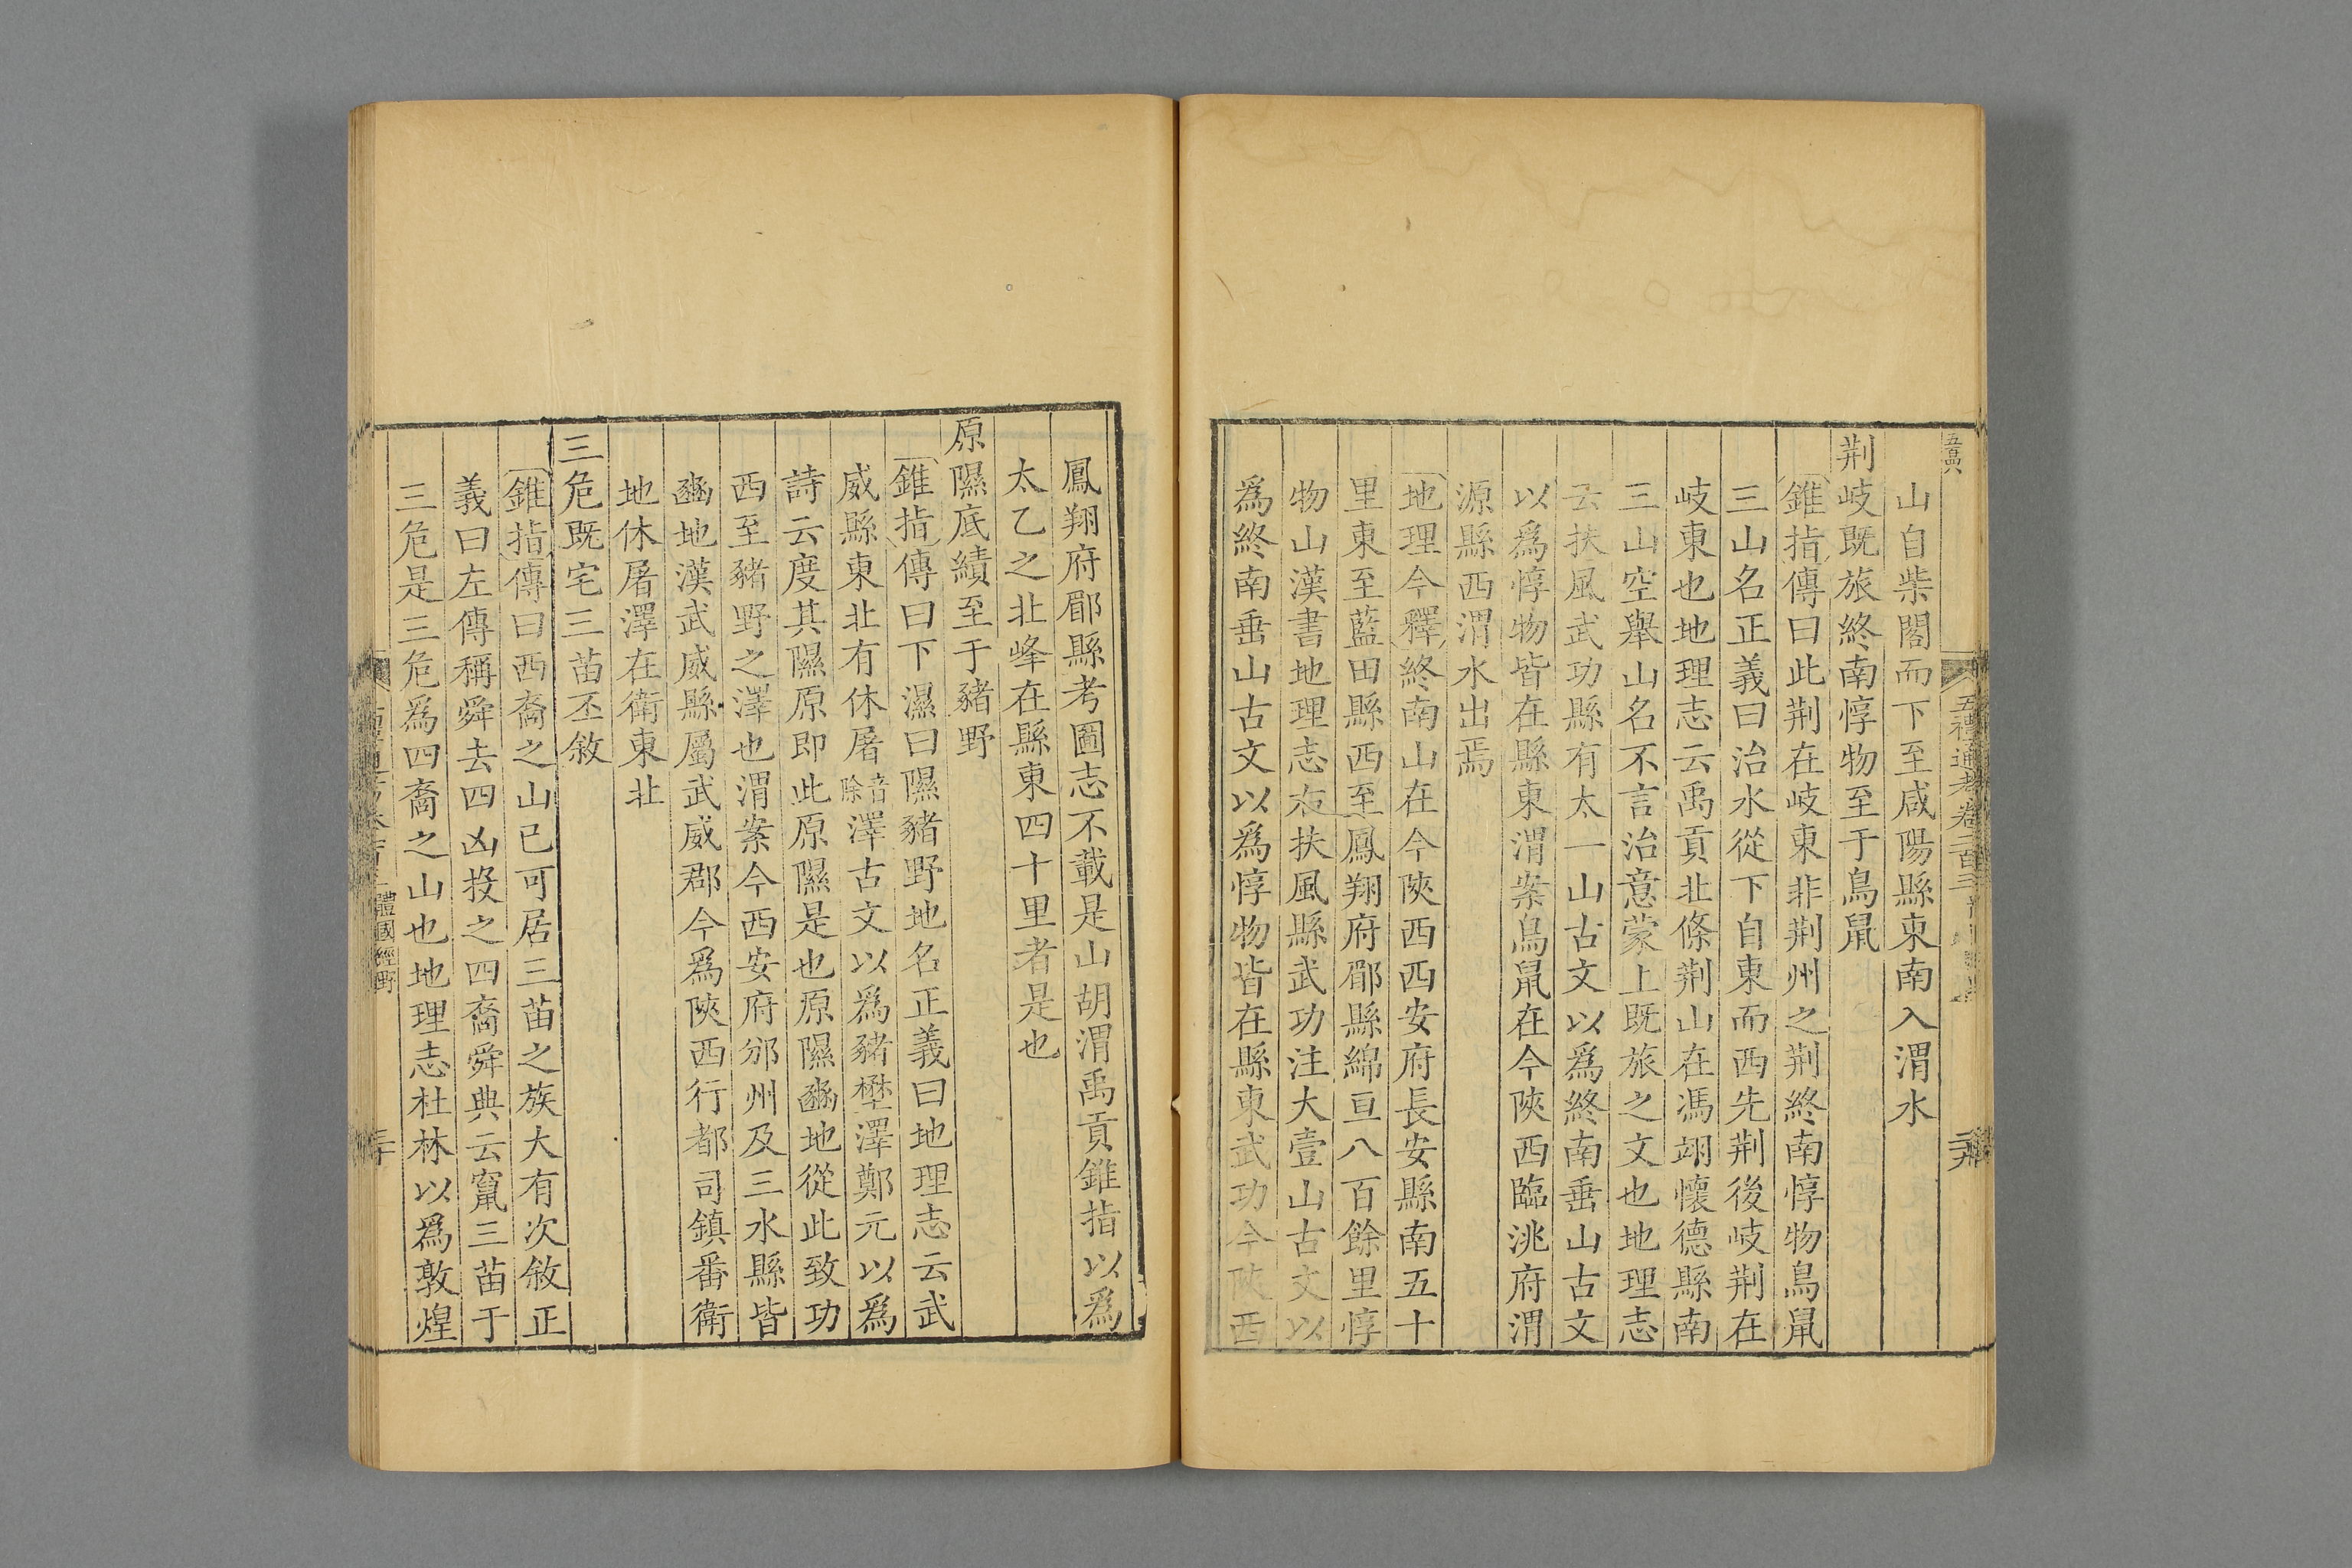 五禮通考卷二百三
山自柴閣而下至咸陽縣東南入渭水
荆岐既旅終南惇物至于鳥鼠
錐指傳曰此荆在岐東非荆州之荆終南惇物鳥鼠
三山名正義曰治水從下自東而西先荆後岐荆在
岐東也地理志云禹貢北條荆山在馮翊懷德縣南
三山空舉山名不言治意蒙上既旅之文也地理志
云扶風武功縣有太一山古文以爲終南垂山古文
以爲惇物皆在縣東渭案鳥鼠在今陝西臨洮府渭
源縣西渭水出焉
地理今釋終南山在今陝西西安府長安縣南五十
里東至藍田縣西至鳳翔府郿縣綿亘八百餘里惇
物山漢書地理志右扶風縣武功注大壹山古文以
爲終南垂山古文以爲惇物皆在縣東武功今陝西
鳳翔府郿縣考圖志不載是山胡渭禹貢錐指以爲
太乙之北峰在縣東四十里者是也
原隰底績至于豬野
錐指傳曰下濕曰隰豬野地名正義曰地理志云武
威縣東北有休屠音除澤古文以爲豬壄澤鄭元以爲
詩云度其隰原即此原隰是也原隰豳地從此致功
西至豬野之澤也渭案今西安府邠州及三水縣皆
豳地漢武威縣屬武威郡今爲陝西行都司鎮番衛
地休屠澤在衛東北
三危既宅三苗丕敘
錐指傳曰西裔之山已可居三苗之族大有次敘正
義曰左傳稱舜去四凶投之四裔舜典云竄三苗于
三危是三危爲四裔之山也地理志杜林以爲敦煌
體國經野